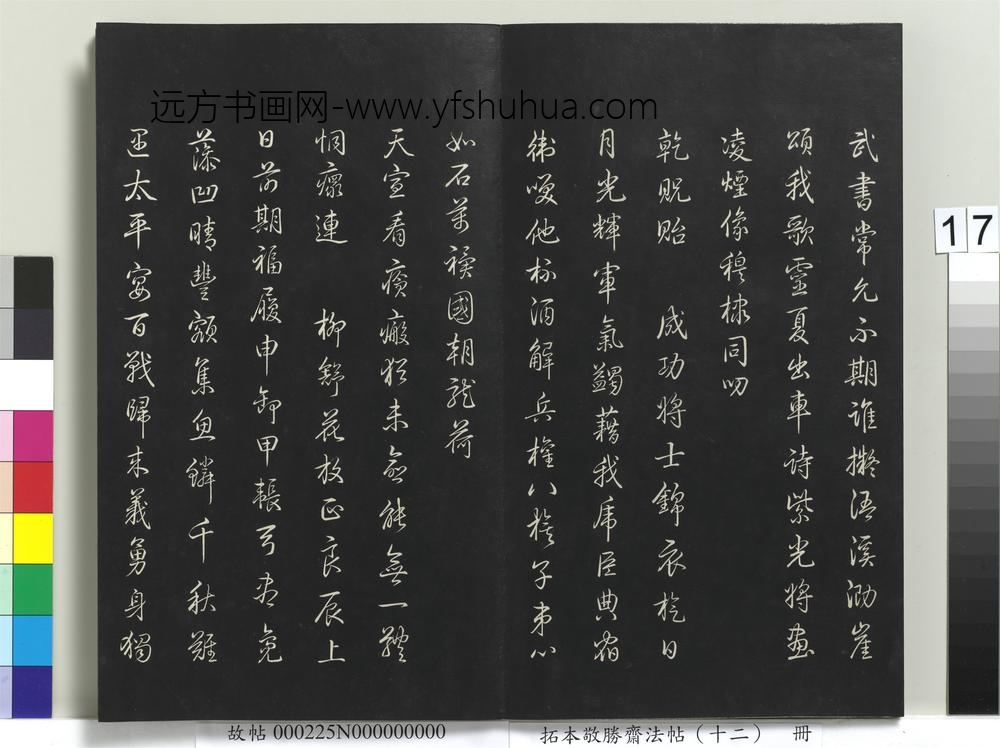 武書常允示期誰擬浯溪泐崖
頌我歌靈夏出車詩紫光將畫
凌煙像穆棣同叨
乾貺貽 成功將士錦衣旋日
月光輝軍氣蠲藉我虎臣典宿
衛嗟他杯酒解兵權八旗子弟心
如石萬禩國朝龍荷
天宣看廣癥猶未無一體
恫瘝連 柳舒花放正良辰上
日前期福履申卸甲韔弓看
藻凹晴豐額集魚鱗千秋難
遝太平宴百戰歸來義勇身獨
远方书画网-www.yfshuhua.com
17
故帖 000225N000000000
拓本敬勝齋法帖（十二） 冊